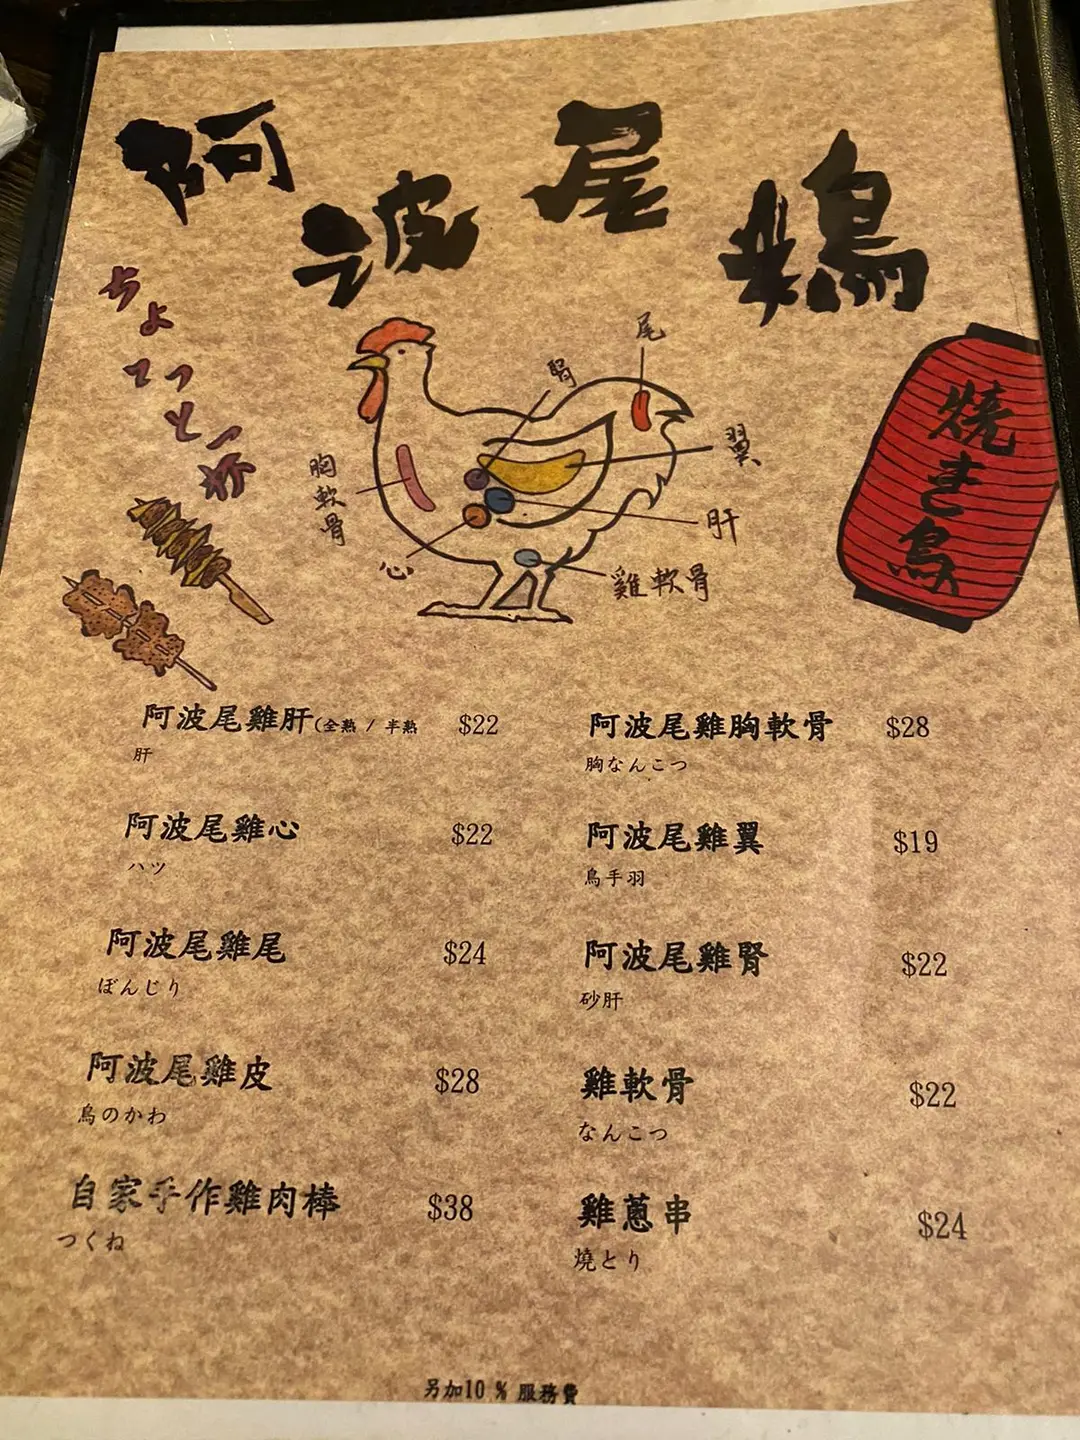 阿波尾鶏
ちよてっと一杯
尾
腎
翼
胸軟骨
肝
心
雞軟骨
燒き鳥
阿波尾雞肝(全熟 / 半熟 $22
肝
阿波尾雞胸軟骨 $28
胸なんこつ
阿波尾雞心 $22
ハツ
阿波尾雞翼 $19
鳥手羽
阿波尾雞尾 $24
ぼんじり
阿波尾雞腎 $22
砂肝
阿波尾雞皮 $28
鳥のかわ
雞軟骨 $22
なんこつ
自家手作雞肉棒 $38
つくね
雞蔥串 $24
燒とり
另加10 % 服務費